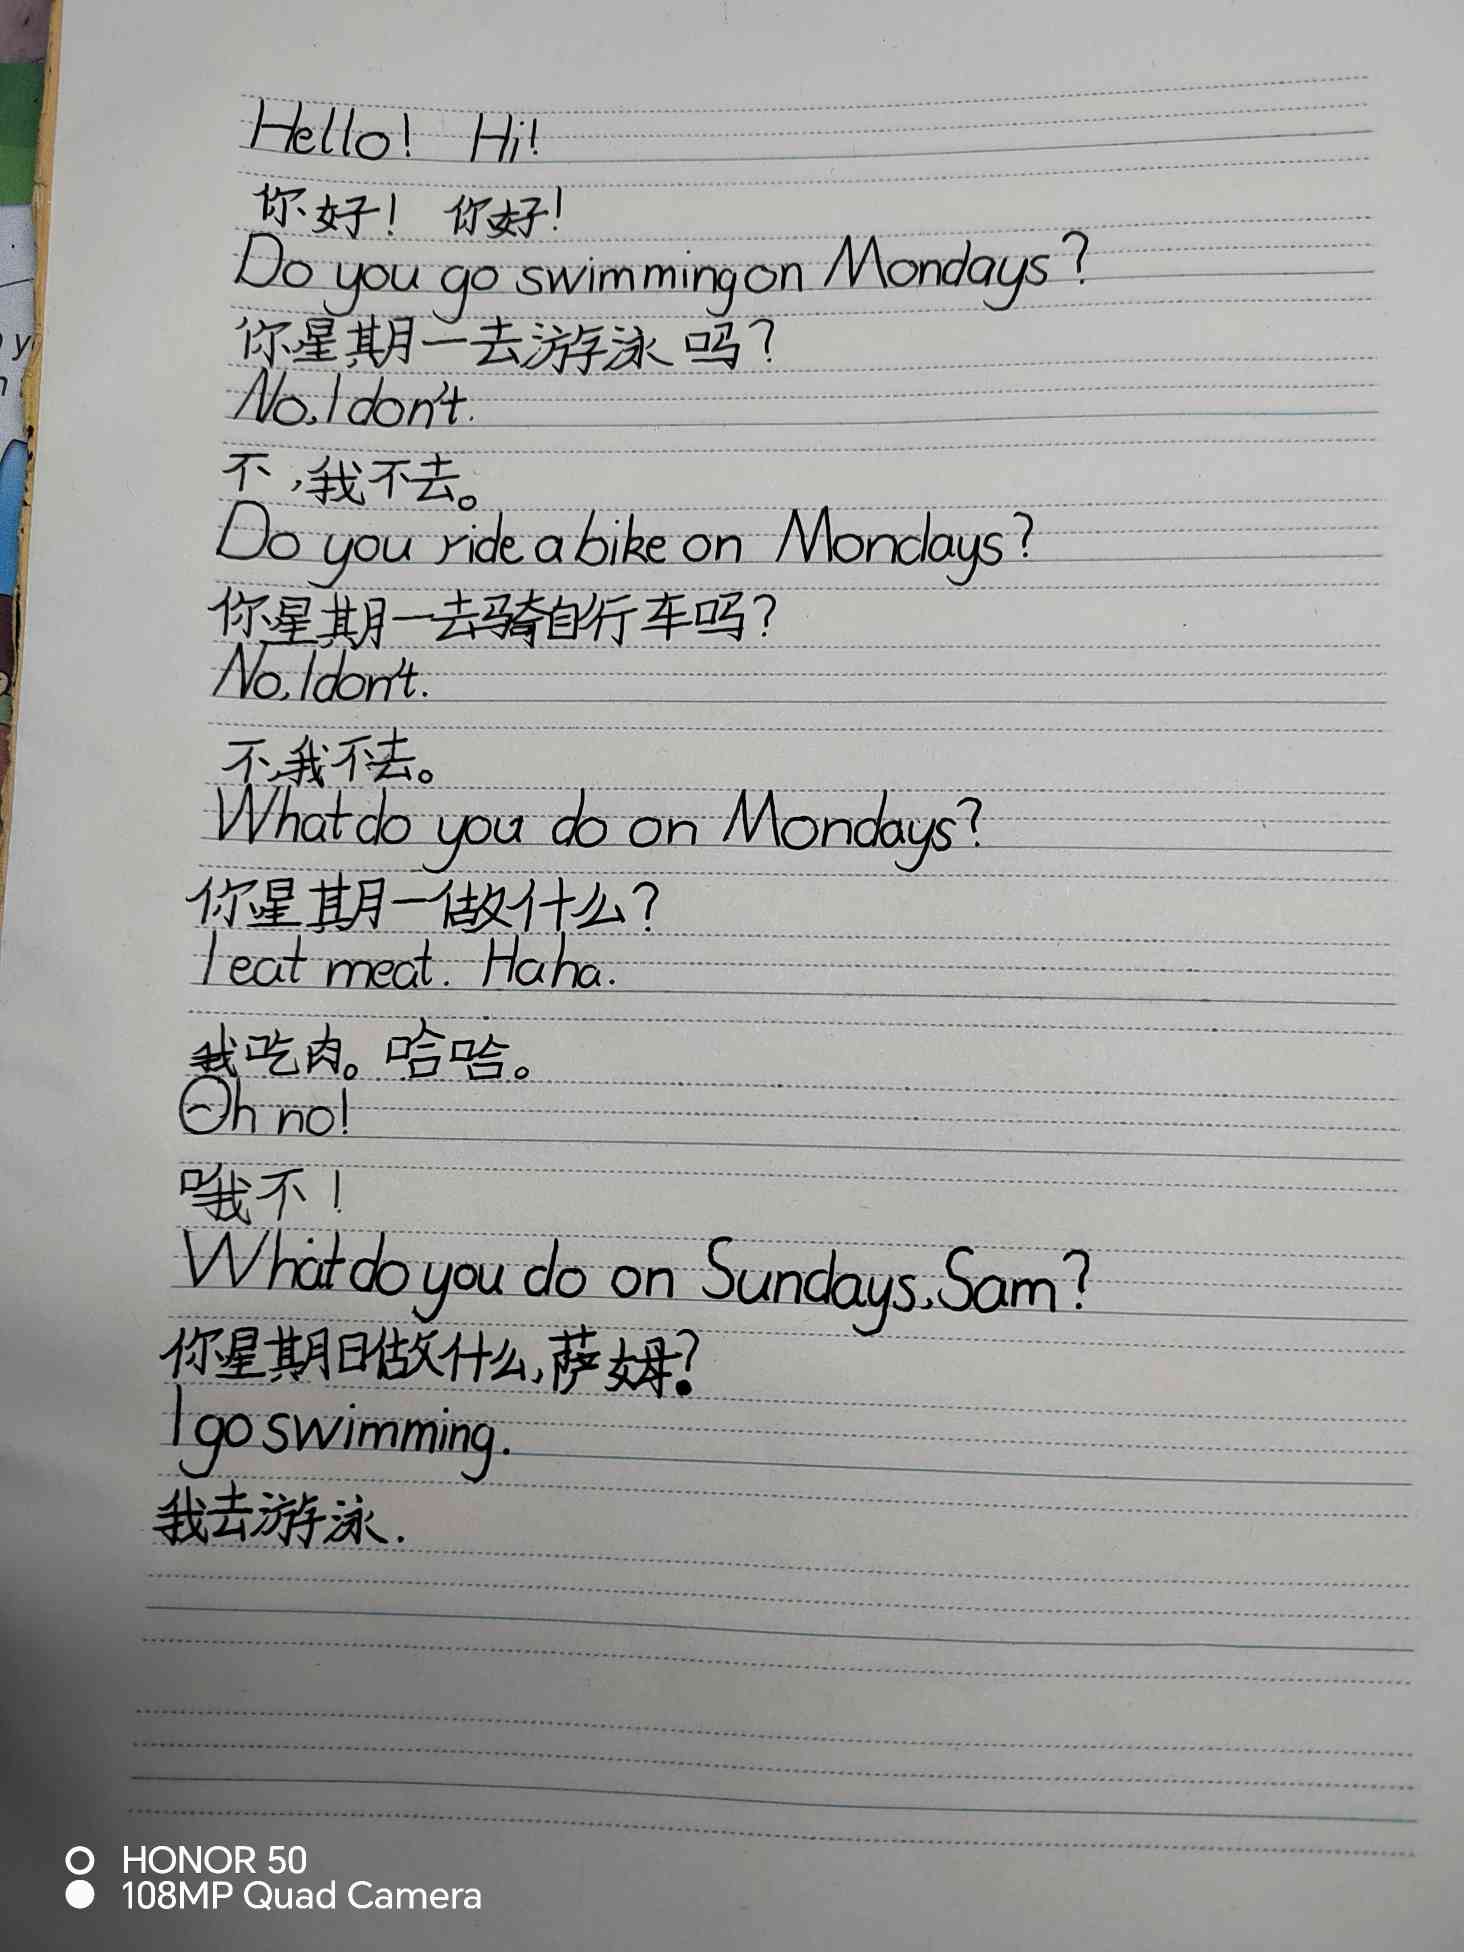 Hello! Hi!
你好! 你好!
Do you go swimming on Mondays?
你星期一去游泳吗?
No, I don't.
不,我不去。
Do you ride a bike on Mondays?
你星期一去骑自行车吗?
No, I don't.
不,我不去。
What do you do on Mondays?
你星期一做什么?
I eat meat. Haha.
我吃肉。哈哈。
Oh no!
哦不!
What do you do on Sundays, Sam?
你星期日做什么,萨姆?
I go swimming.
我去游泳.
HONOR 50
108MP Quad Camera